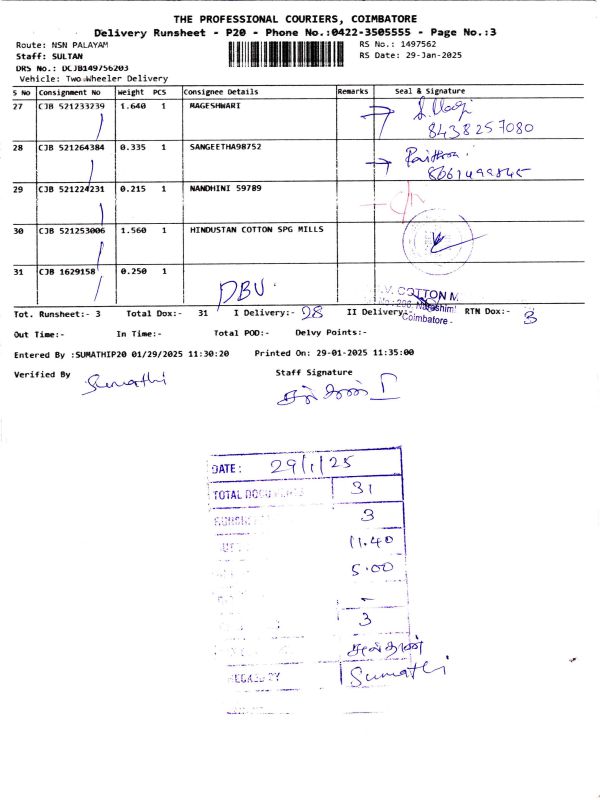 THE PROFESSIONAL COURIERS, COIMBATORE
Delivery Runsheet - P20 - Phone No.:0422-3505555 - Page No.:3
Route: NSN PALAYAM
RS No.: 1497562
Staff: SULTAN
RS Date: 29-Jan-2025
DRS No.: DCJB149756203
Vehicle: Two Wheeler Delivery
S No Consignment No Weight PCS Consignee Details Remarks Seal & Signature
27 CJB 521233239 1.640 1 MAGESHWARI
8438257080
28 CJB 521264384 0.335 1 SANGEETHA98752
29 CJB 521224231 0.215 1 NANDHINI 59789
30 CJB 521253006 1.560 1 HINDUSTAN COTTON SPG MILLS
31 CJB 1629158 0.250 1
DBV
COTTON M
Coimbatore -
Tot. Runsheet:- 3 Total Dox:- 31 I Delivery:- 28 II Delivery:- RTN Dox:- 3
Out Time:- In Time:- Total POD:- Delvy Points:-
Entered By :SUMATHIP20 01/29/2025 11:30:20 Printed On: 29-01-2025 11:35:00
Verified By Sumathi
Staff Signature
DATE: 29/1/25
TOTAL DOCUMENTS 31
3
11.40
5.00
-
3
சுல்தான்
CHECKED BY Sumathi